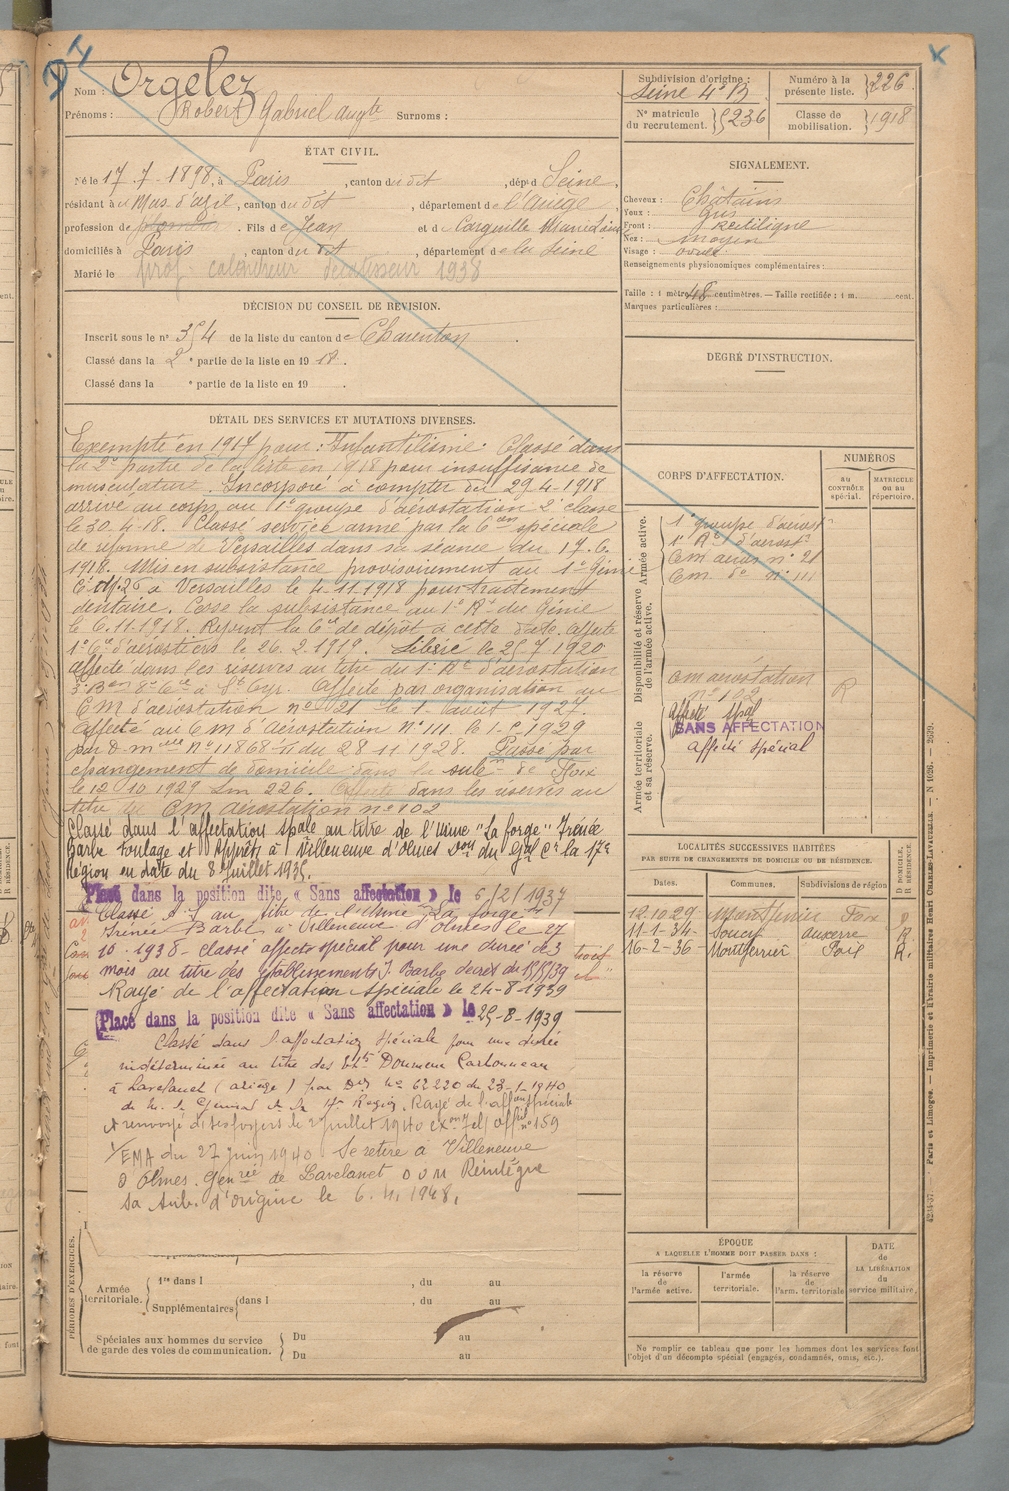 Nom : Orgelez
Prénoms : Robert Gabriel Augte Surnoms :
ÉTAT CIVIL.
Né le 17.7.1898, à Paris, canton du dt, dépt d Seine,
résidant à u Mas d'azil, canton du dt, département de l'Ariège,
profession de plombier. Fils de Jean et de
domiciliés à Paris, canton du dt, département de la Seine
Marié le
prof calandreur décatisseur 1938
DÉCISION DU CONSEIL DE RÉVISION.
Inscrit sous le n° 354 de la liste du canton de Charenton.
Classé dans la 2e partie de la liste en 1918.
Classé dans la e partie de la liste en 19 .
DÉTAIL DES SERVICES ET MUTATIONS DIVERSES.
Exempté en 1917 pour : Infantilisme. Classé dans
la 2e partie de la liste en 1918 pour insuffisance de
musculature. Incorporé à compter du 29-4-1918
arrivé au corps au 1e groupe d'aérostation 2e classe
le 30.4-18. Classé service armé par la 6e on spéciale
de réforme de Versailles dans sa séance du 17.6.
1918. Mis en subsistance provisoirement au 1e Génie
à Versailles le 4.11.1918 pour traitement
dentaire. Cesse la subsistance au 1e Rt du Génie
le 6.11.1918. Rejoint la Cie de dépôt à cette date. Affecté
1e Cie d'aérostiers le 26.2.1919. Libéré le 25.7.1920
affecté dans les réserves au titre du 1e Rt d'aérostation
Affecté par organisation au
CM d'aérostation no 21 le 1. août 1927.
Affecté au CM d'Aérostation No 111 le 1-5-1929
par D. mlle No 11868-11 du 28-11-1928. Passé par
changement de domicile dans la subon de Foix
le 12.10.1929 Lm 226. Affecté dans les réserves au
titre du CM Aérostation no 102
Classé dans l'affectation spale au titre de l'Usine "La forge" Irénée
Barbe Foulage et Apprêts à Villeneuve d'Olmes Don du Gal Ct la 17e
Région en date du 8 Juillet 1935.
Placé dans la position dite « Sans affectation » le 6/2/1937
Classé A.S au titre de l'Usine La forge
Irénée Barbe à Villeneuve d'Olmes le 27
10-1938 - classé affecté spécial pour une durée de 3
mois au titre des établissements J. Barbe décret du 15/5/39
Rayé de l'affectation spéciale le 24-8-1939
Placé dans la position dite « Sans affectation » le 25-8-1939
Classé dans l'affectation spéciale pour une durée
indéterminée au titre des Ets Doumenc Carbonneau
à Lavelanet (ariège) par Don No 62220 du 23-1-1940
de M. le Général Ct la 17e Région. Rayé de l'affon spéciale
et renvoyé dans ses foyers le 2 juillet 1940
/EMA du 27 juin 1940. Se retire à Villeneuve
d'Olmes. Genrie de Lavelanet Réintègre
sa sub. d'origine le 6.4.1948.
PÉRIODES D'EXERCICES.
Armée territoriale. 1re dans l , du au
Supplémentaires dans l , du au
Spéciales aux hommes du service de garde des voies de communication. Du au
Du au
Subdivision d'origine : Seine 4e B
Numéro à la présente liste. 226
N° matricule du recrutement. 5236
Classe de mobilisation. 1918
SIGNALEMENT.
Cheveux : Châtains
Yeux : gris
Front : rectiligne
Nez : moyen
Visage : ovale
Renseignements physionomiques complémentaires :
Taille : 1 mètre 48 centimètres. — Taille rectifiée : 1 m. cent.
Marques particulières :
DEGRÉ D'INSTRUCTION.
CORPS D'AFFECTATION.
NUMÉROS
au CONTRÔLE spécial.
MATRICULE ou au répertoire.
Armée active.
1e groupe d'aérost
1e Rt d'aérost
Cm aéros no 21
Cm do no 111
Disponibilité et réserve de l'armée active.
cm aérostation no 102 R
Armée territoriale et sa réserve.
Affecté spal
SANS AFFECTATION
affecté spécial
LOCALITÉS SUCCESSIVES HABITÉES
PAR SUITE DE CHANGEMENTS DE DOMICILE OU DE RÉSIDENCE.
Dates. Communes. Subdivisions de région D DOMICILE, R RÉSIDENCE.
12-10-29 Montferrier Foix D
11-1-34 Soucy Auxerre R.
16-2-36 Montferrier Foix R.
ÉPOQUE
A LAQUELLE L'HOMME DOIT PASSER DANS :
la réserve de l'armée active.
l'armée territoriale.
la réserve de l'arm. territoriale
DATE de LA LIBÉRATION du service militaire.
Ne remplir ce tableau que pour les hommes dont les services font
l'objet d'un décompte spécial (engagés, condamnés, omis, etc.).
Paris et Limoges. — Imprimerie et librairie militaires Henri CHARLES-LAVAUZELLE. — N 1026. — 2639.